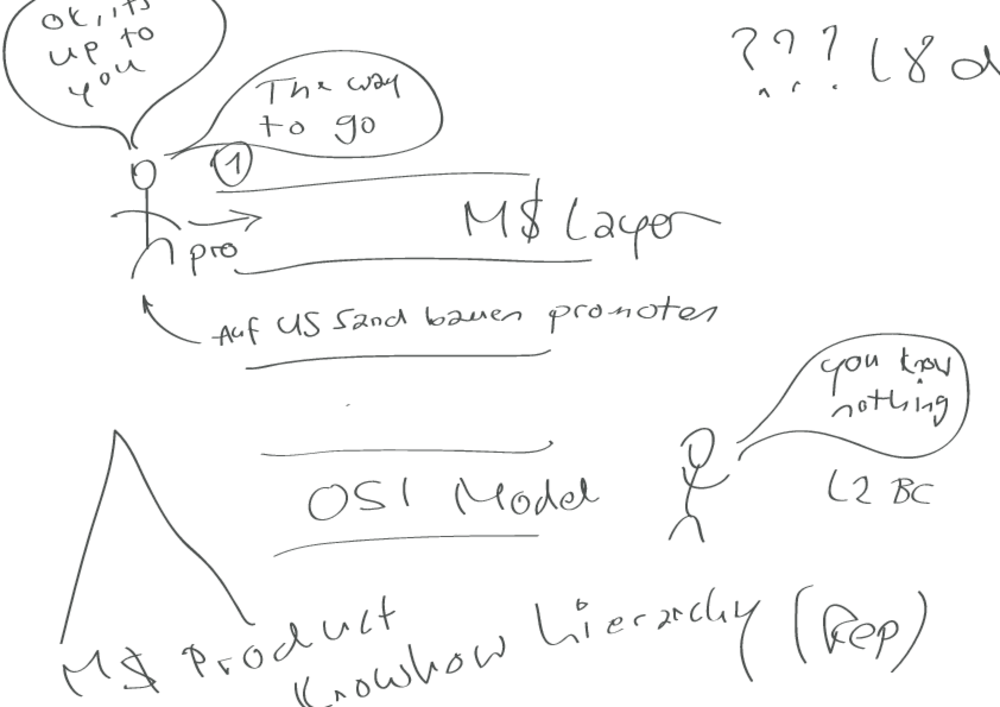 ok, its
up to
you
The way
to go
??? L8 d
1
M$ Layer
pro
Auf US Sand bauen promoten
you know
nothing
L2 BC
OSI Model
M$ Product
Knowhow hierarchy (Rep)